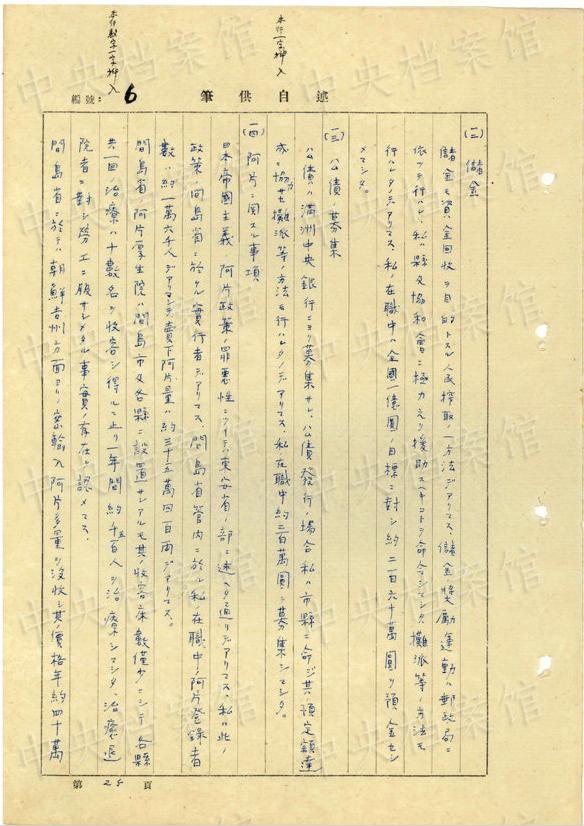 本行一字挿入
本行数字一字挿入
筆供自述
編號: 6
(二) 儲金
儲金モ資金回收ヲ目的トスル人民搾取ノ一方法デアリマス、儲金奨勵運動ハ郵政局ニ
依ツテ行ハレ、私ハ縣及協和會ニ極力之ヲ援助スベキコトヲ命令シマシタ、攤派等ノ方法モ
行ハレタノデアリマス、私ノ在職中ハ全國一億圓ノ目標ニ對シ約二百六十萬圓ヲ預金セシ
メマシタ。
(三) 公債ノ募集
公債ハ滿洲中央銀行ニヨリ募集サレ、公債發行ノ場合私ハ市縣ニ命ジ其ノ預定額達
成ニ協力サセ攤派等ノ方法モ行ハレタノデアリマス、私ノ在職中約二百萬圓ヲ募集シマシタ。
(四) 阿片ニ関スル事項
日本帝國主義ノ阿片政策ノ罪悪性ニツイテハ東安省ノ部ニ述ベタ通リデアリマス、私ハ此ノ
政策ノ间島省ニ於ケル實行者デアリマス、間島省管内ニ於ケル私ノ在職中ノ阿片登録者
數ハ約一萬六千人デアリマシテ賣下阿片量ハ約三十五萬四百両デアリマス。
間島省ノ阿片厚生院ハ間島市及各縣ニ設置サレアルモ其ノ收容床數僅少ニシテ各縣
共一回ノ治療ハ十數名ヲ收容シ得ルニ止リ一年間約千五百人ヲ治療シマシタ、治癒退
院者ニ對シ勞工ニ服サシメタル事實ノ存在ヲ認メマス。
間島省ニ於テハ朝鮮吉州方面ヨリノ密輸入阿片多量ヲ没收シ其ノ價格年約四十萬
第 25 頁
中央档案馆